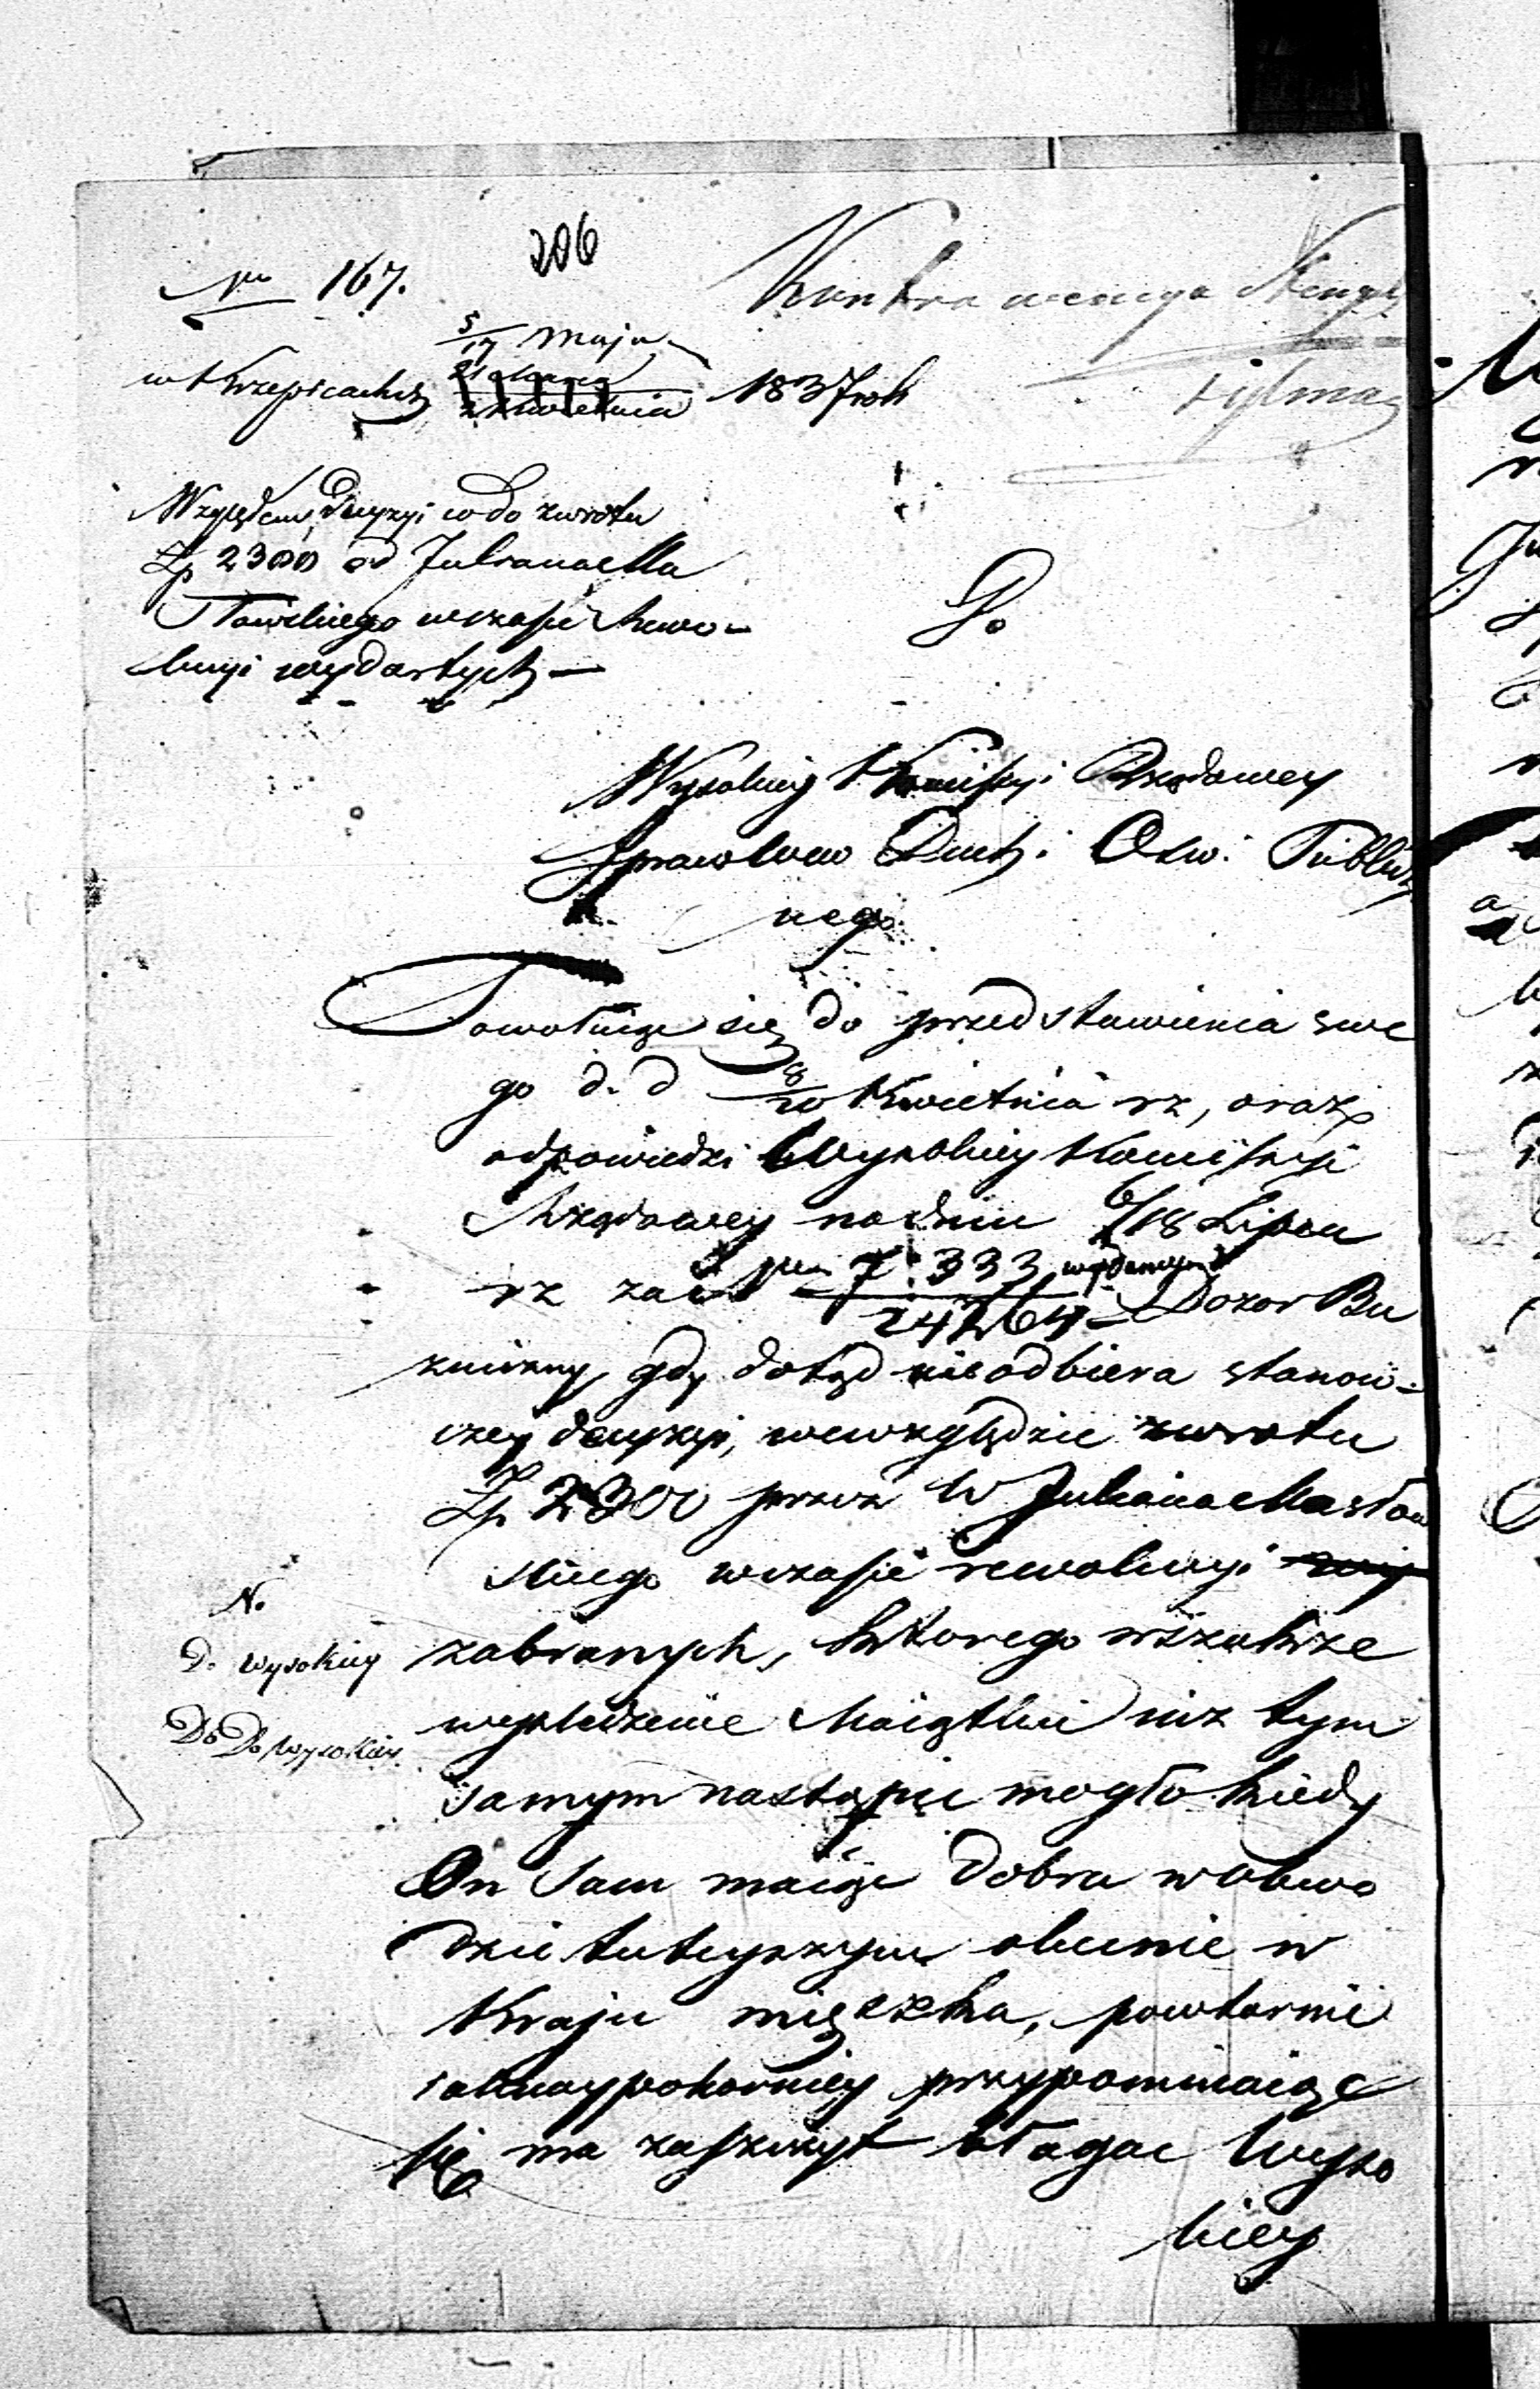 206
No 167.
5/17 Maja
w Krzepicach 1837 rok
Względem Decyzyi co do zwrotu
Zp 2300 od Juliana Ma
sławskiego w czasie Rewo-
lucyi wydartych —
Do
Wysokiey Kommissyi Rządowey
Spraw Wew Duch i Osw. Publicz
nego
Powołuiąc się do przedstawienia swe
go d. d 8/20 Kwietnia rz, oraz
odpowiedzi Wysokiey Kommissyi
Rządowey na dniu 6/18 Lipca
rz za No 7.333/24264 wydaney Dozor Bu
zniczny, gdy dotąd nieodbiera stanow-
czey decyzyi, wewzględzie zwrotu
Zp 2300 przez W Juliana Masłow
skiego w czasie rewolucyi
zabranych, ktorego wszakże
wyśledzenie Maiątku niz tym
samym nastąpić mogło kiedy
On sam maiąc Dobra w obwo
dzie tuteyszym obecnie w
Kraju mięszka, powtornie
iaknaypokorniey przypominaiąc
się ma zaszczyt błagac Wyso
kiey
N.
D. Wysokiey
Do Do Wysokiey